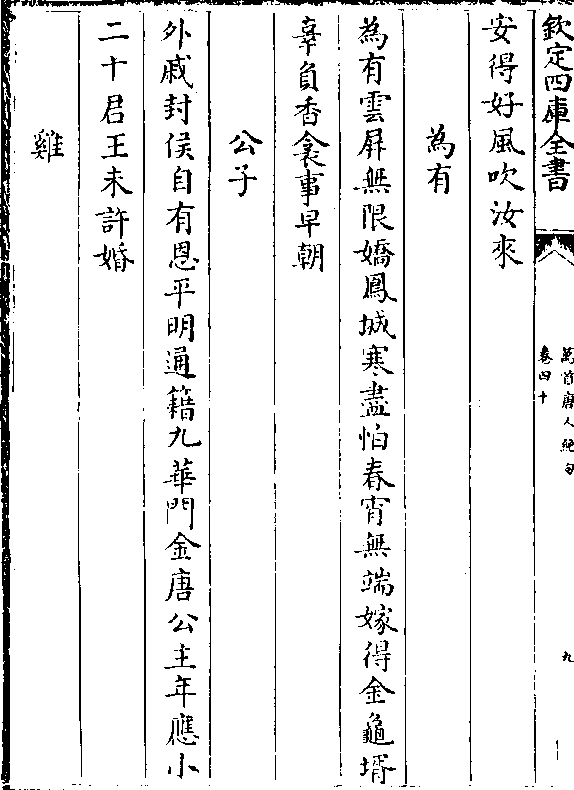 欽定四庫全書
萬首唐人絶句
卷四十
九
安得好風吹汝來
為有
為有雲屏無限嬌鳳城寒盡怕春宵無端嫁得金龜壻
辜負香衾事早朝
公子
外戚封侯自有恩平明通籍九華門金唐公主年應小
二十君王未許婚
雞